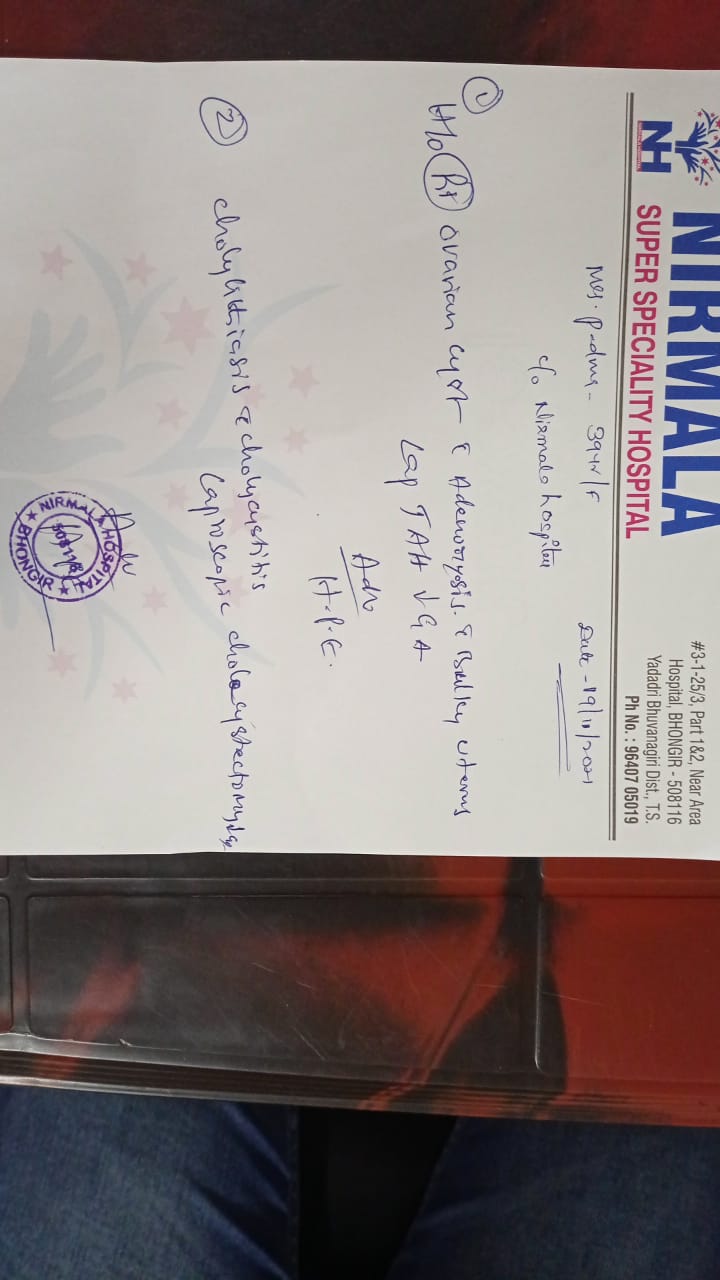 NIRMALA
NH SUPER SPECIALITY HOSPITAL
#3-1-25/3, Part 1&2, Near Area
Hospital, BHONGIR - 508116
Yadadri Bhuvanagiri Dist., T.S.
Ph No. : 96407 05019
Mrs. Padma - 39yr/F
Date - 19/11/2021
c/o Nirmala hospital
① H/o Rt ovarian cyst c Adenomyosis. c Bulky uterus
Lap TAH
Adv
H.P.E.
② cholylithiasis c cholycystitis
Laproscopic cholecystectomy
NIRMALA HOSPITAL
★ BHONGIR ★